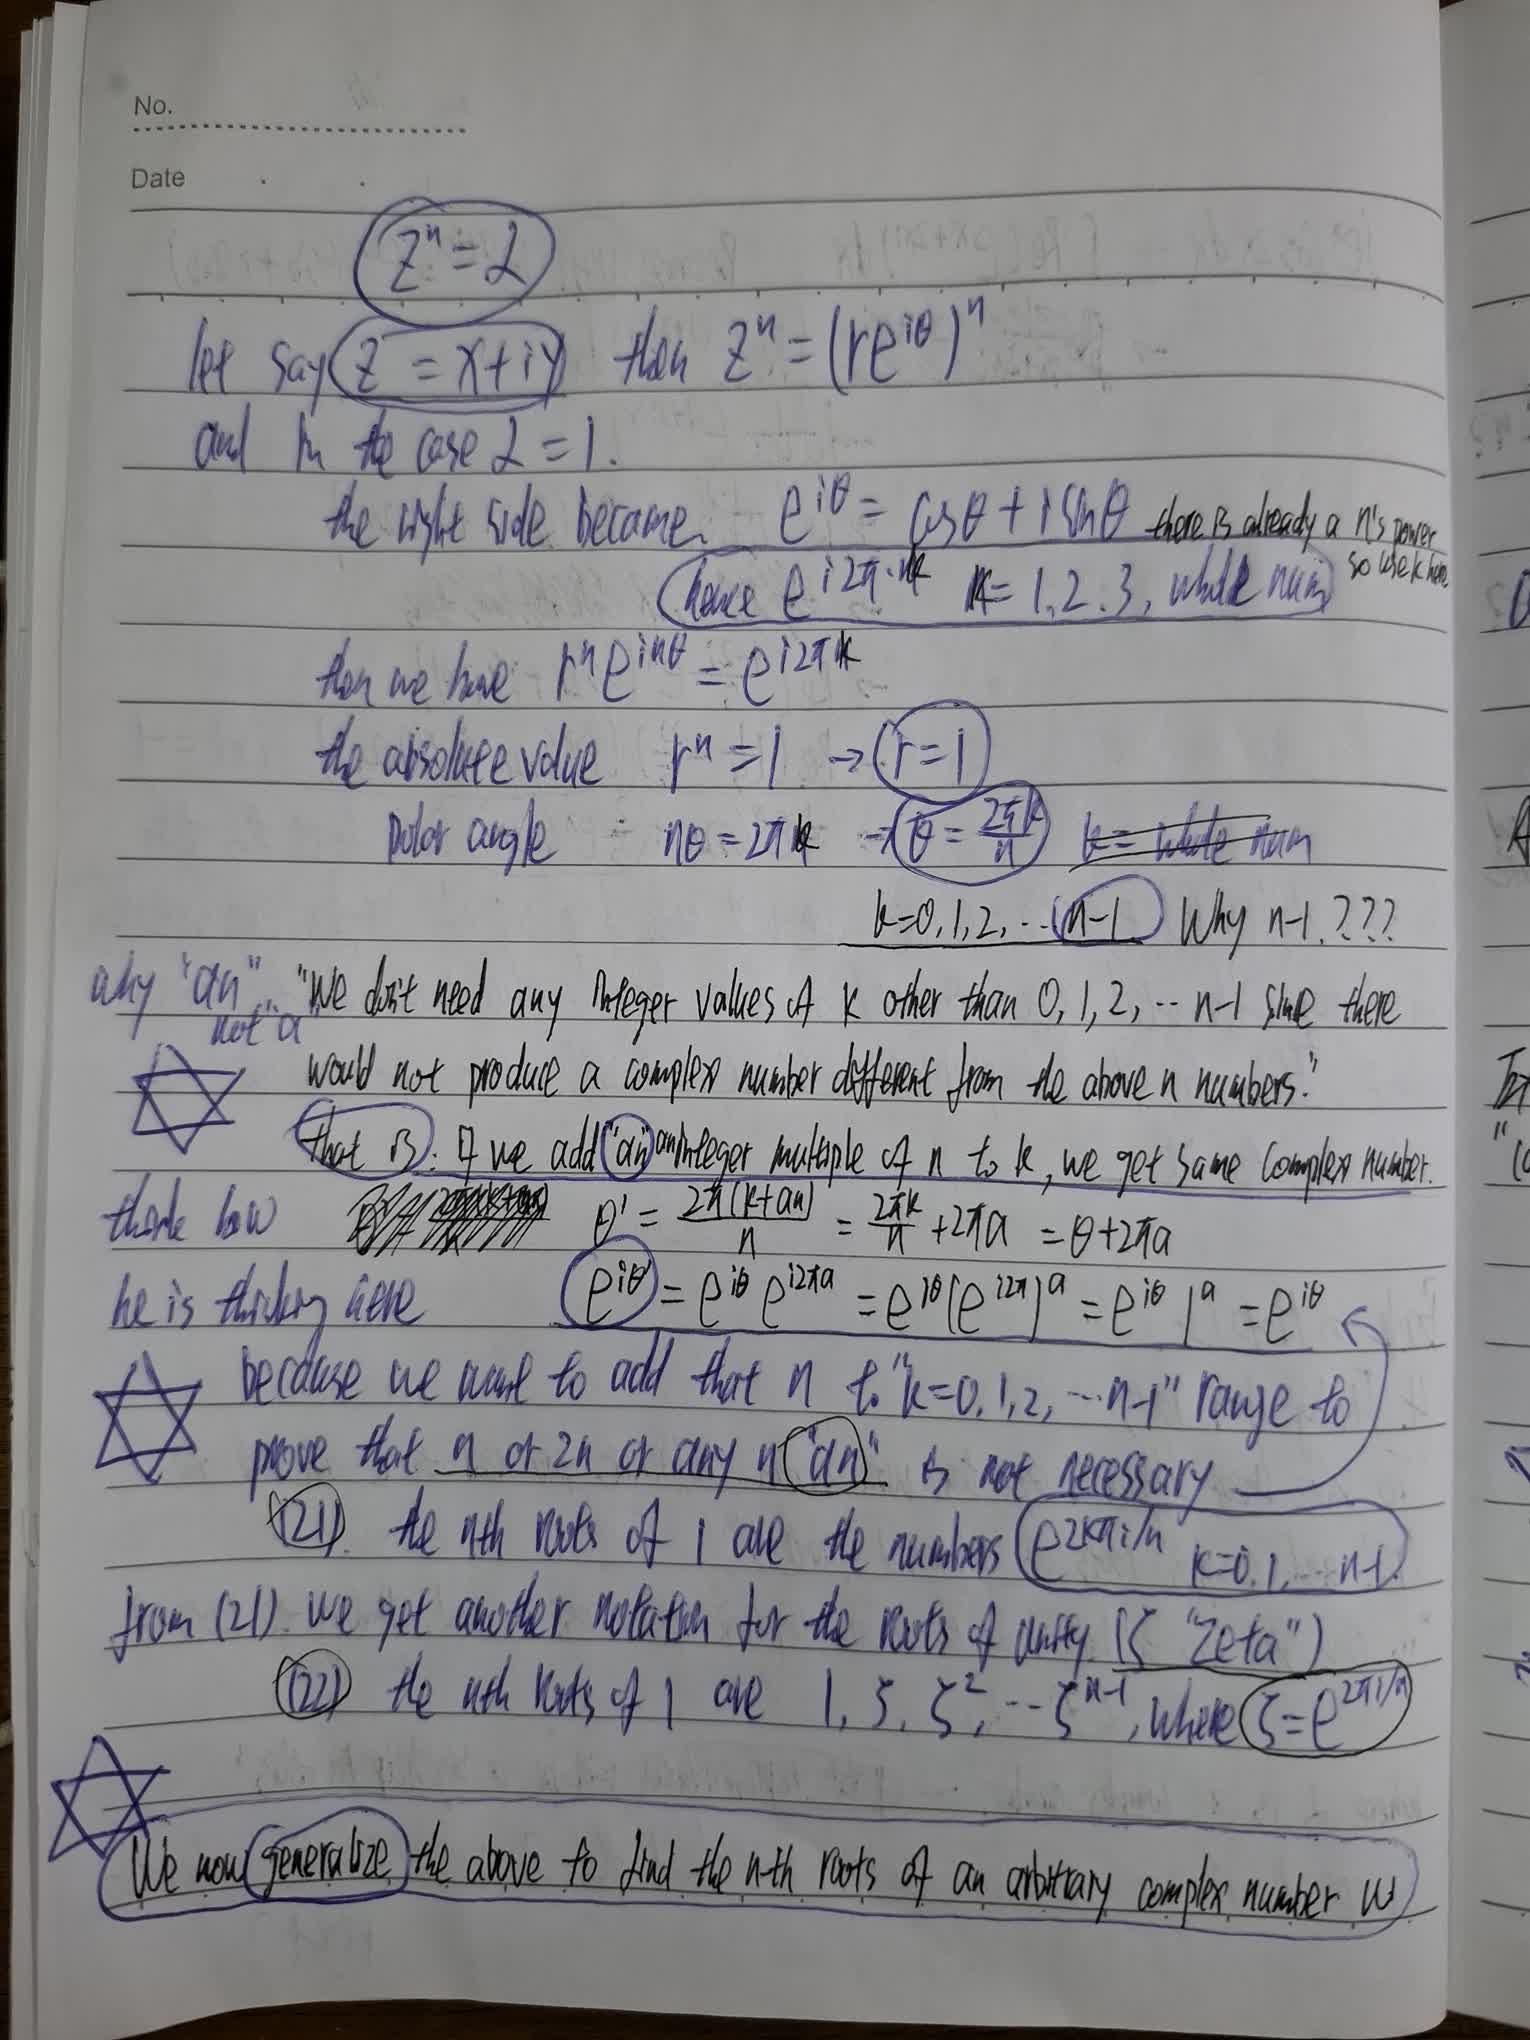 No.
Date
zⁿ = 2
let say z = x+iy then zⁿ = (re^{iθ})ⁿ
and in the case 2 = 1.
the right side became e^{iθ} = cosθ + i sinθ there is already a n's power
so use k here.
hence e^{i2π·k} k = 1, 2, 3, whole num
then we have rⁿe^{inθ} = e^{i2πk}
the absolute value rⁿ = 1 → r = 1
Polar angle nθ = 2πk → θ = 2πk/n k = whole num
k=0, 1, 2, ... n-1 Why n-1.???
why "an".. "We don't need any integer values of k other than 0, 1, 2, ... n-1 since there
not "a"
would not produce a complex number different from the above n numbers."
that is: If we add "an" an integer multiple of n to k, we get same complex number.
think how θ' = 2π(k+an)/n = 2πk/n + 2πa = θ + 2πa
he is thinking here e^{iθ'} = e^{iθ} e^{i2πa} = e^{iθ}(e^{i2π})^a = e^{iθ} 1^a = e^{iθ}
because we want to add that n to "k=0, 1, 2, ... n-1" range to
prove that n or 2n or any n "an" is not necessary
(21). the nth roots of 1 are the numbers e^{2kπi/n} k=0, 1, ... n-1.
from (21). we get another notation for the roots of unity (ζ "zeta")
(22) the nth roots of 1 are 1, ζ, ζ², ... ζ^{n-1}, where ζ = e^{2πi/n}
We now generalize the above to find the n-th roots of an arbitrary complex number w